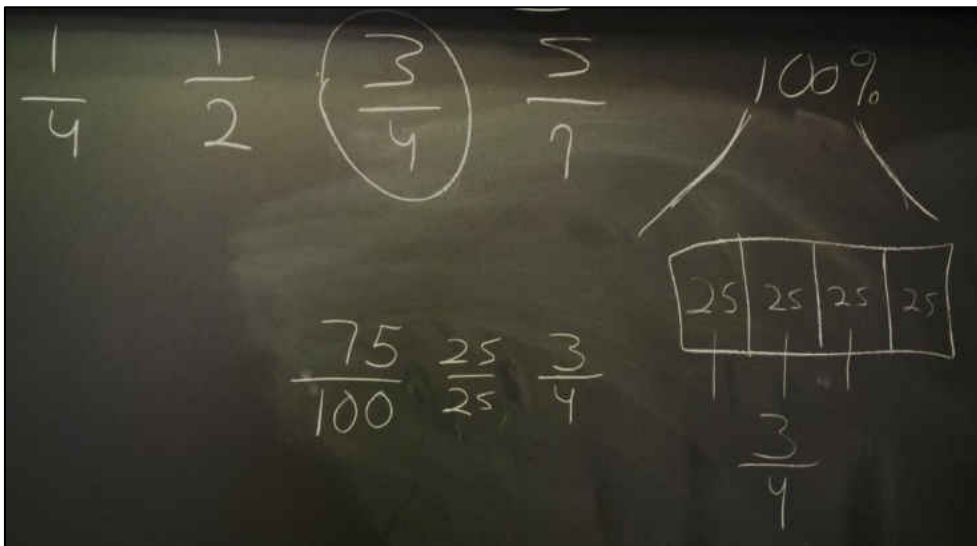 1/4 1/2 3/4 5/7
100%
25 25 25 25
75/100 25/25 3/4
3/4